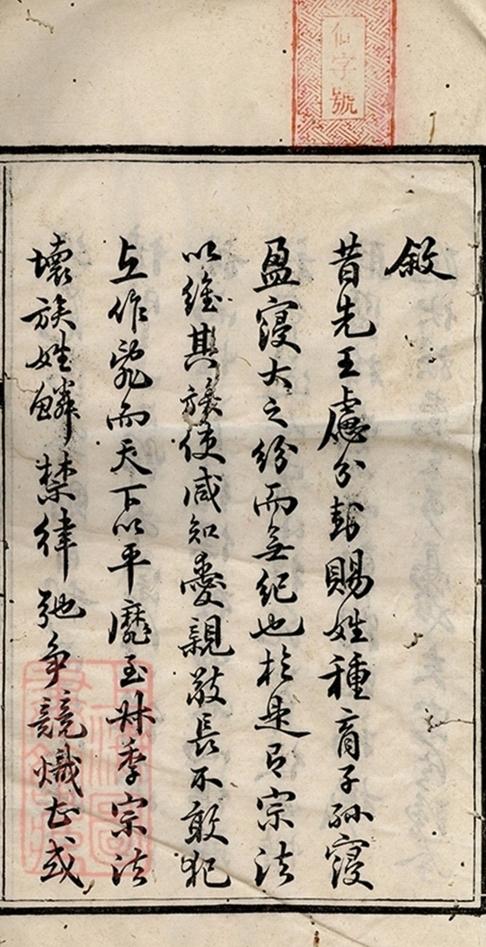 仙字號
敘
昔先王慮分封賜姓種育子孫寖
盈寖大之紛而無紀也於是有宗法
以維其族使咸知愛親敬長不敢犯
上作亂而天下以平至叔季宗法
壞族姓鱗禁律弛爭競熾甚或